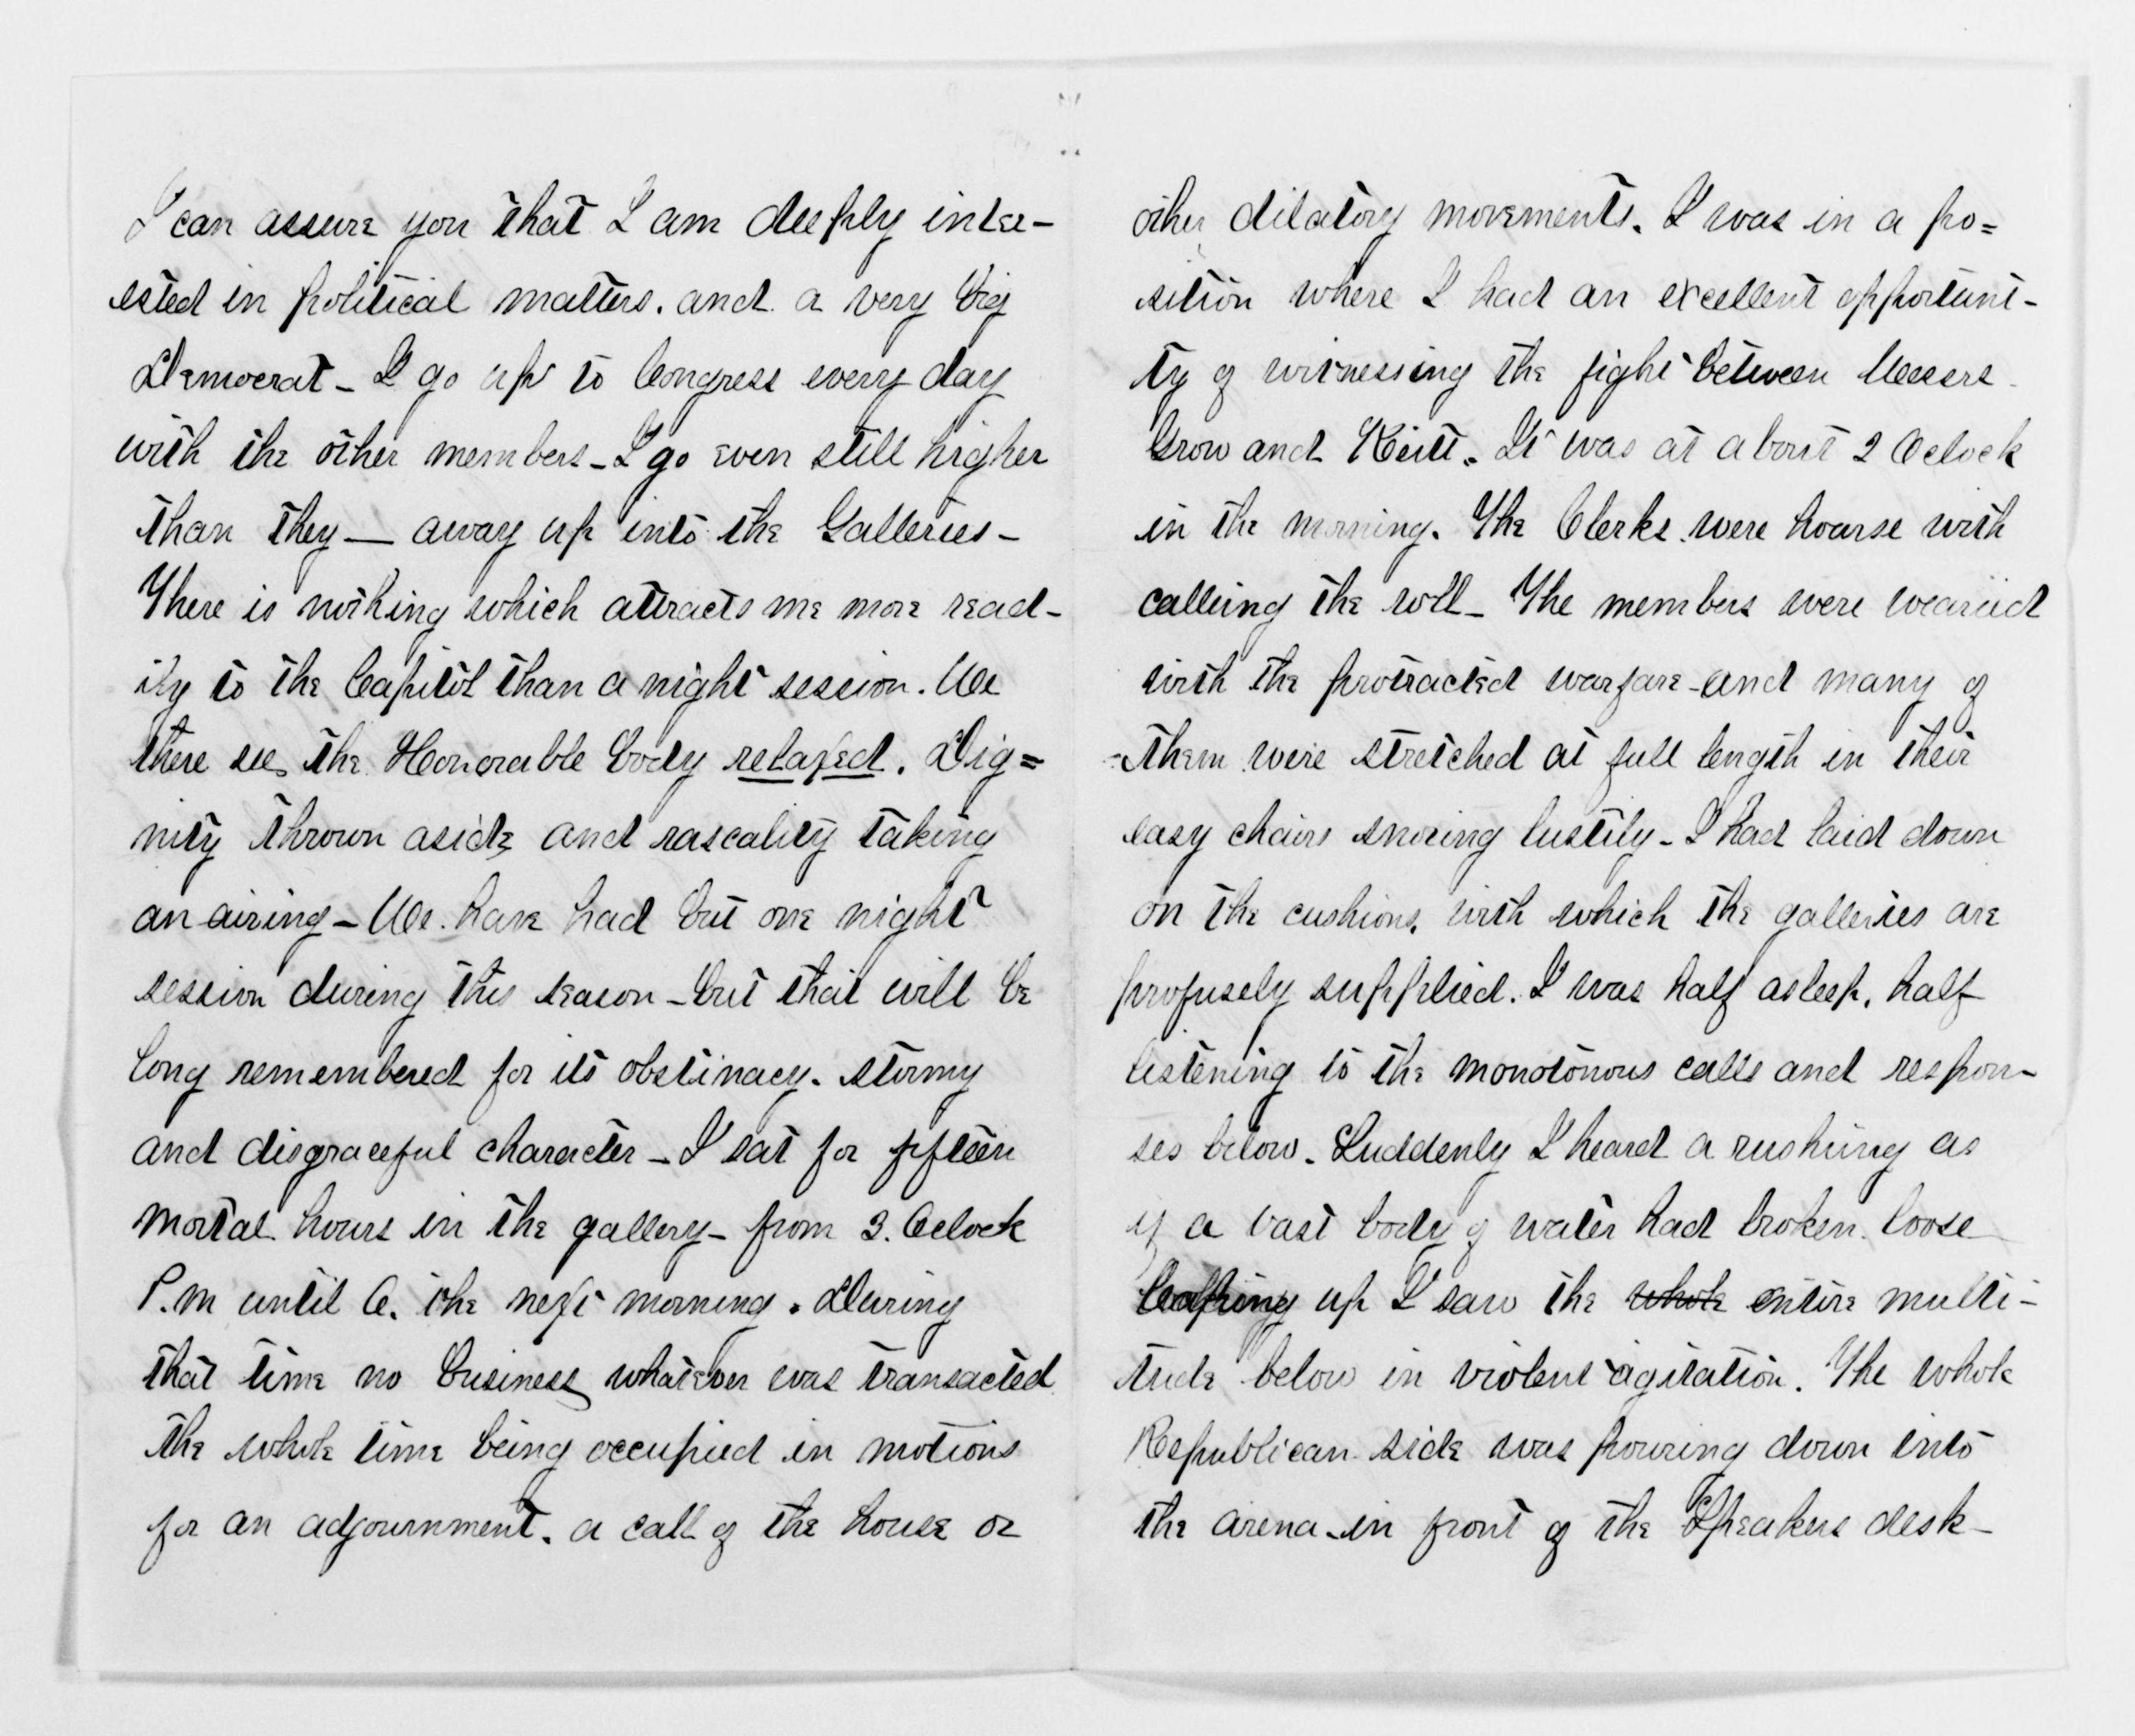 I can assure you that I am deeply inter-
ested in political matters. and a very big
Democrat - I go up to Congress every day
with the other members - I go even still higher
than they — away up into the Galleries -
There is nothing which attracts me more read-
ily to the Capitol than a night session. We
there see the Honorable body relaxed. Dig=
nity thrown aside and rascality taking
an airing - We have had but one night
session during this season - but that will be
long remembered for its obstinacy. stormy
and disgraceful character - I sat for fifteen
mortal hours in the gallery - from 3. Oclock
P.m until 6. the next morning. During
that time no business whatever was transacted
the whole time being occupied in motions
for an adjournment. a call of the house or
other dilatory movements. I was in a po=
sition where I had an excellent opportuni-
ty of witnessing the fight between Messrs
Grow and Keitt. It was at about 2 Oclock
in the morning. The Clerks were hoarse with
calling the roll - The members were wearied
with the protracted warfare - and many of
them were stretched at full length in their
easy chairs snoring lustily - I had laid down
on the cushions, with which the galleries are
profusely supplied. I was half asleep. half
listening to the monotonous calls and respon-
ses below. Suddenly I heard a rushing as
if a vast body of water had broken loose
Leaping up I saw the whole entire multi-
tude below in violent agitation. The whole
Republican side was pouring down into
the arena - in front of the Speakers desk -